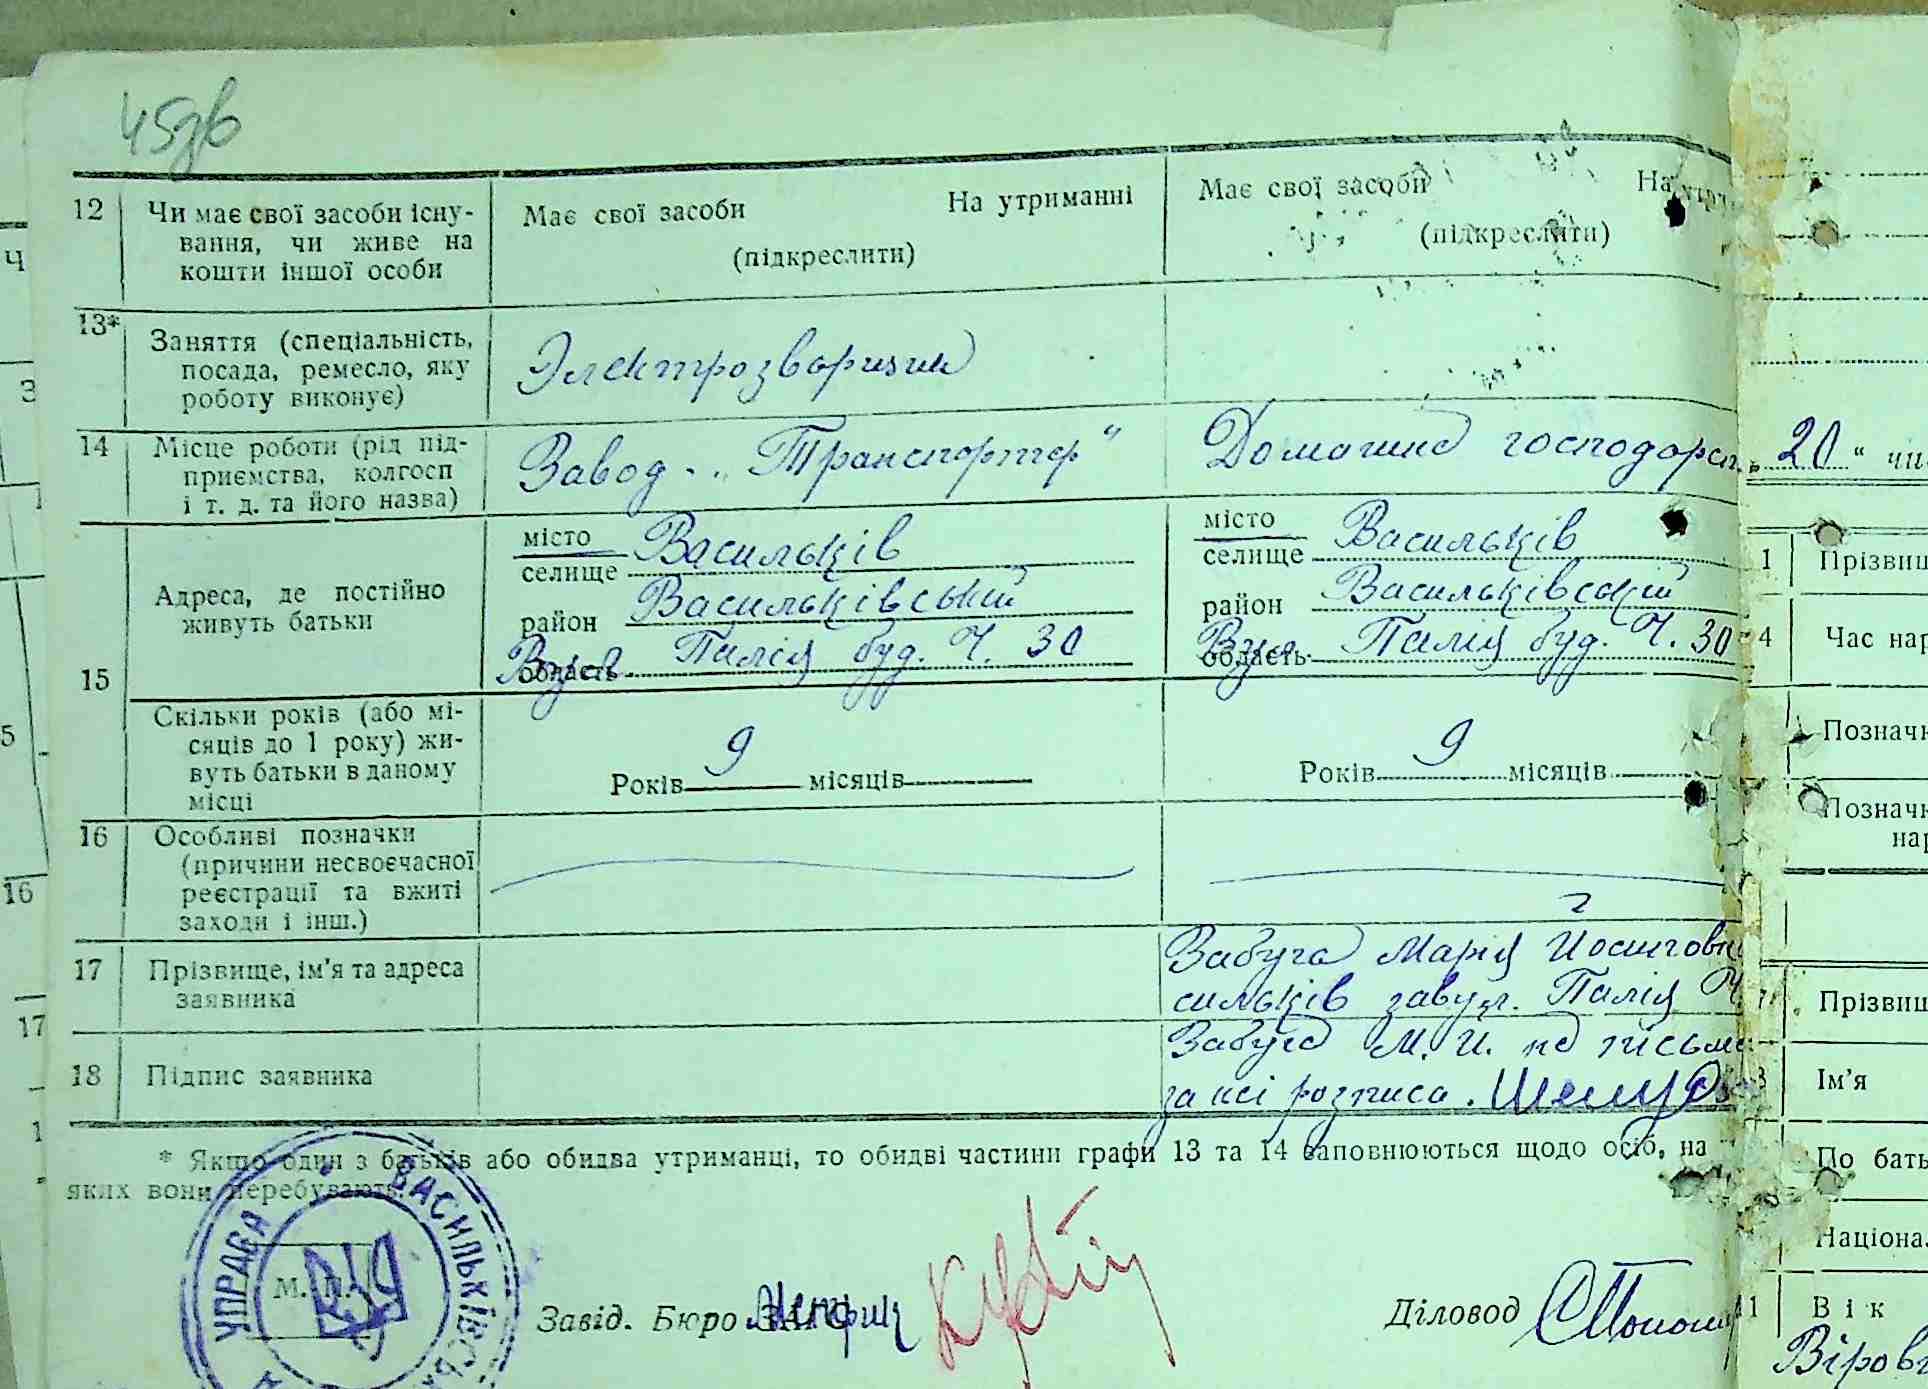 45зв
12 Чи має свої засоби існу-
вання, чи живе на
кошти іншої особи
Має свої засоби На утриманні
(підкреслити)
Має свої засоби На утри
(підкреслити)
13* Заняття (спеціальність,
посада, ремесло, яку
роботу виконує)
Электрозварщик
14 Місце роботи (рід під-
приємства, колгосп
і т. д. та його назва)
Завод „Транспортер“
Домашнє господарст
15 Адреса, де постійно
живуть батьки
місто
селище Васильків
район Васильківський
область Палія буд. Ч. 30
місто
селище Васильків
район Васильківський
область Палія буд. Ч. 30
Скільки років (або мі-
сяців до 1 року) жи-
вуть батьки в даному
місці
Років 9 місяців
Років 9 місяців
16 Особливі позначки
(причини несвоєчасної
реєстрації та вжиті
заходи і інш.)
17 Прізвище, ім'я та адреса
заявника
Забуга Марія Йосиповн
сильків завул. Палія Ч.
18 Підпис заявника
Забуга М. И. не письме
за неї розписа.
* Якщо один з батьків або обидва утриманці, то обидві частини графи 13 та 14 заповнюються щодо осіб, на
яких вони перебувають.
УПРАВА ВАСИЛЬКІВСЬК
М. П.
Завід. Бюро ЗАГС
Діловод
„ 20 “ чи
1 Прізвищ
4 Час нар
Позначк
Позначк
нар
Прізвищ
Ім'я
По бать
Націона
11 Вік
Ч
З
5
16
17
1